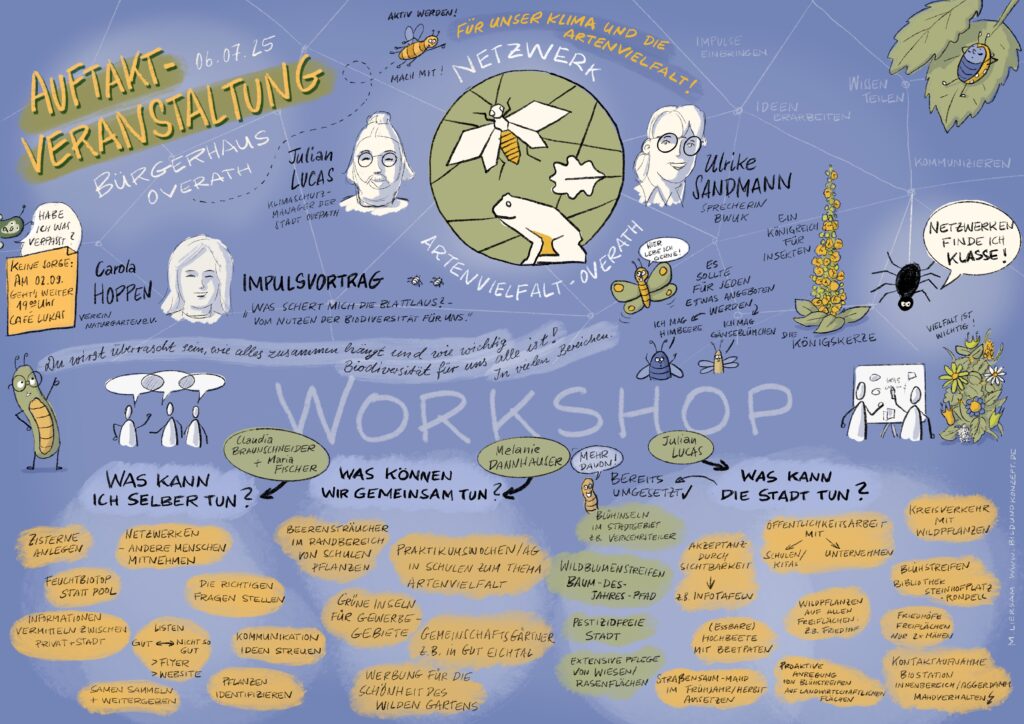 AUFTAKT-
VERANSTALTUNG
06.07.25
BÜRGERHAUS
OVERATH
AKTIV WERDEN!
MACH MIT!
FÜR UNSER KLIMA UND DIE
ARTENVIELFALT!
NETZWERK
ARTENVIELFALT-OVERATH
IMPULSE
EINBRINGEN
WISSEN
TEILEN
IDEEN
ERARBEITEN
KOMMUNIZIEREN
Julian
LUCAS
KLIMASCHUTZ-
MANAGER DER
STADT OVERATH
Ulrike
SANDMANN
SPRECHERIN
BWUK
HABE
ICH WAS
VERPASST?
KEINE SORGE:
AM 02.09.
GEHT'S WEITER
19:00 UHR
CAFÉ LUKAS
Carola
HOPPEN
VEREIN
NATURGARTEN e.V.
IMPULSVORTRAG
"WAS SCHERT MICH DIE BLATTLAUS? -
VOM NUTZEN DER BIODIVERSITÄT FÜR UNS."
HIER
LEBE ICH
GERNE!
ES
SOLLTE
FÜR JEDEN
ETWAS ANGEBOTEN
WERDEN
ICH MAG
HIMBEERE
ICH MAG
GÄNSEBLÜMCHEN
EIN
KÖNIGREICH
FÜR
INSEKTEN
DIE
KÖNIGSKERZE
NETZWERKEN
FINDE ICH
KLASSE!
VIELFALT IST
WICHTIG!
Du wirst überrascht sein, wie alles zusammen hängt und wie wichtig
Biodiversität für uns alle ist!
In vielen Bereichen.
WORKSHOP
Claudia
BRAUNSCHNEIDER
+ Maria
FISCHER
WAS KANN
ICH SELBER TUN?
ZISTERNE
ANLEGEN
NETZWERKEN
- ANDERE MENSCHEN
MITNEHMEN
FEUCHTBIOTOP
STATT POOL
DIE RICHTIGEN
FRAGEN STELLEN
INFORMATIONEN
VERMITTELN ZWISCHEN
PRIVAT + STADT
LISTEN
GUT ↔ NICHT SO
GUT
> FLYER
> WEBSITE
KOMMUNIKATION
IDEEN STREUEN
SAMEN SAMMELN
+ WEITERGEBEN
PFLANZEN
IDENTIFIZIEREN
Melanie
DANNHAUSER
WAS KÖNNEN
WIR GEMEINSAM TUN?
BEERENSTRÄUCHER
IM RANDBEREICH
VON SCHULEN
PFLANZEN
PRAKTIKUMSWOCHEN/AG
IN SCHULEN ZUM THEMA
ARTENVIELFALT
GRÜNE INSELN
FÜR GEWERBE-
GEBIETE
GEMEINSCHAFTSGÄRTNER
Z.B. IN GUT EICHTAL
WERBUNG FÜR DIE
SCHÖNHEIT DES
WILDEN GARTENS
Julian
LUCAS
WAS KANN
DIE STADT TUN?
MEHR
DAVON!
BEREITS
UMGESETZT ✓
BLÜHINSELN
IM STADTGEBIET
Z.B. VERKEHRSTEILER
WILDBLUMENSTREIFEN
BAUM-DES-
JAHRES-PFAD
PESTIZIDFREIE
STADT
EXTENSIVE PFLEGE
VON WIESEN/
RASENFLÄCHEN
ÖFFENTLICHKEITSARBEIT
MIT
SCHULEN/
KITAS
UNTERNEHMEN
AKZEPTANZ
DURCH
SICHTBARKEIT
Z.B. INFOTAFELN
KREISVERKEHR
MIT
WILDPFLANZEN
BLÜHSTREIFEN
BIBLIOTHEK
STEINHOFPLATZ-
RONDELL
WILDPFLANZEN
AUF ALLEN
FREIFLÄCHEN
Z.B. FRIEDHÖFE
FRIEDHÖFE
FREIFLÄCHEN
NUR 2x MÄHEN
(ESSBARE)
HOCHBEETE
MIT BEETPATEN
STRASSENSAUM-MAHD
IM FRÜHJAHR/HERBST
AUSSETZEN
PROAKTIVE
ANREGUNG
VON BLÜHSTREIFEN
AUF LANDWIRTSCHAFTLICHEN
FLÄCHEN
KONTAKTAUFNAHME
BIOSTATION
INNENBEREICH/AGGERDAMM
MAHDVERHALTEN
M. LIERSAM WWW.BILDUNDKONZEPT.DE